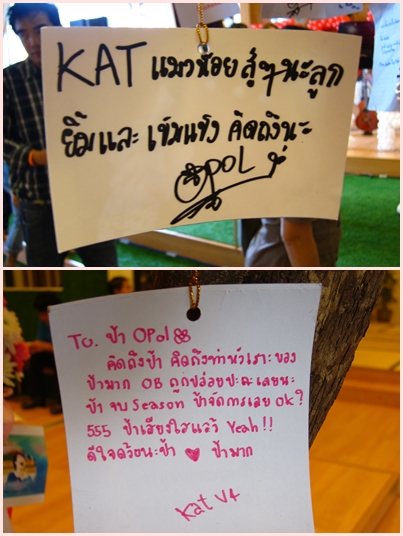 KAT แมวน้อย สู้ๆนะลูก
ยิ้มและ เข้มแข็ง คิดถึงนะ
OPOL
To. ป้า OPol
คิดถึงป้า คิดถึงท่าหัวเราะของ
ป้ามาก OB ถูกปล่อยปะละเลยนะ
ป้า จบ Season ป้าจัดการเลย ok?
555 ป้าเสียงใสแล้ว Yeah!!
ดีใจด้วยนะป้า ♥ ป้ามาก
Kat V4